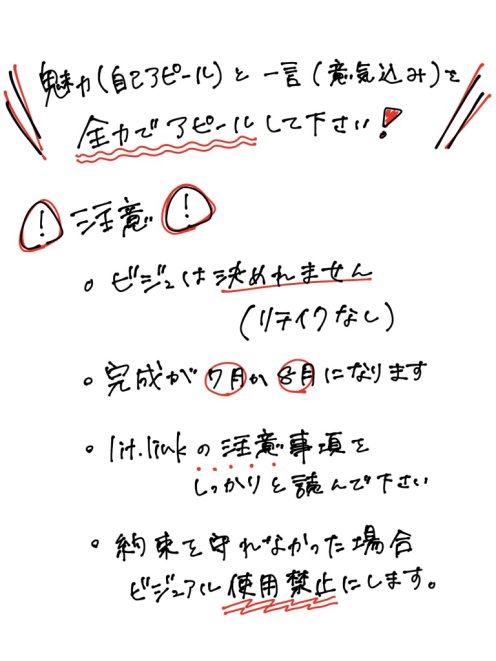 魅力(自己アピール)と一言(意気込み)を
全力でアピールして下さい!
! 注意 !
• ビジュは決めれません
(リテイクなし)
• 完成が7月か8月になります
• lit.linkの注意事項を
しっかりと読んで下さい
• 約束を守れなかった場合
ビジュアル使用禁止にします。